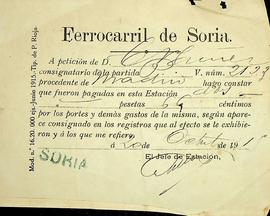 Ferrocarril de Soria.
A petición de D.
consignatario de la partida V. núm. 2123
procedente de Madrid hago constar
que fueron pagadas en esta Estación
pesetas céntimos
por los portes y demás gastos de la misma, según aparece
consignado en los registros que al efecto se le exhibieron
y á los que me refiero.
á 20 de Octubre de 191
El Jefe de Estación,
SORIA
Mod. n.º 16.-20.000 eje.-Junio 1915.-Tip. de P. Rioja.